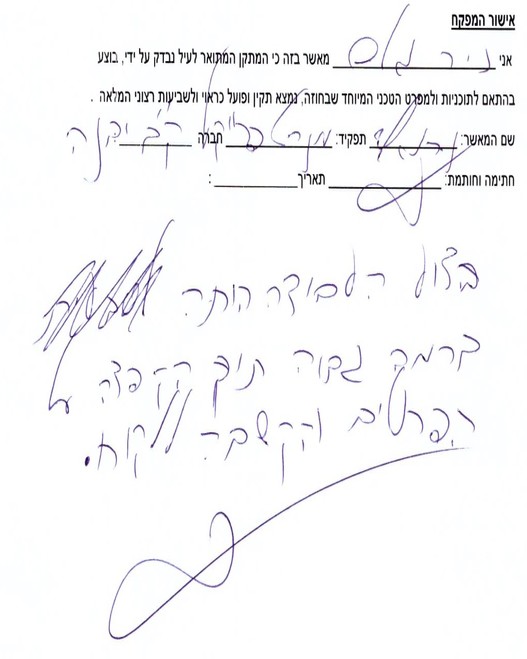 אישור המפקח
אני ניר מאשר בזה כי המתקן המתואר לעיל נבדק על ידי, בוצע
בהתאם לתוכניות ולמפרט הטכני המיוחד שבחוזה, נמצא תקין ופועל כראוי ולשביעות רצוני המלאה .
שם המאשר: תפקיד: חברה
חתימה וחותמת: תאריך :
ביצוע העבודה היתה
ברמה גבוה תוך הקפדה על
הפרטים והקשבה ללקוח.